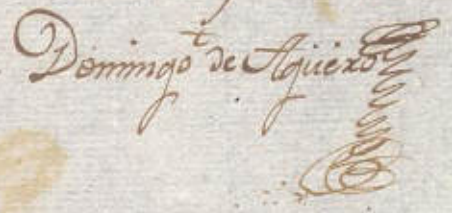 Domingo de Agüero